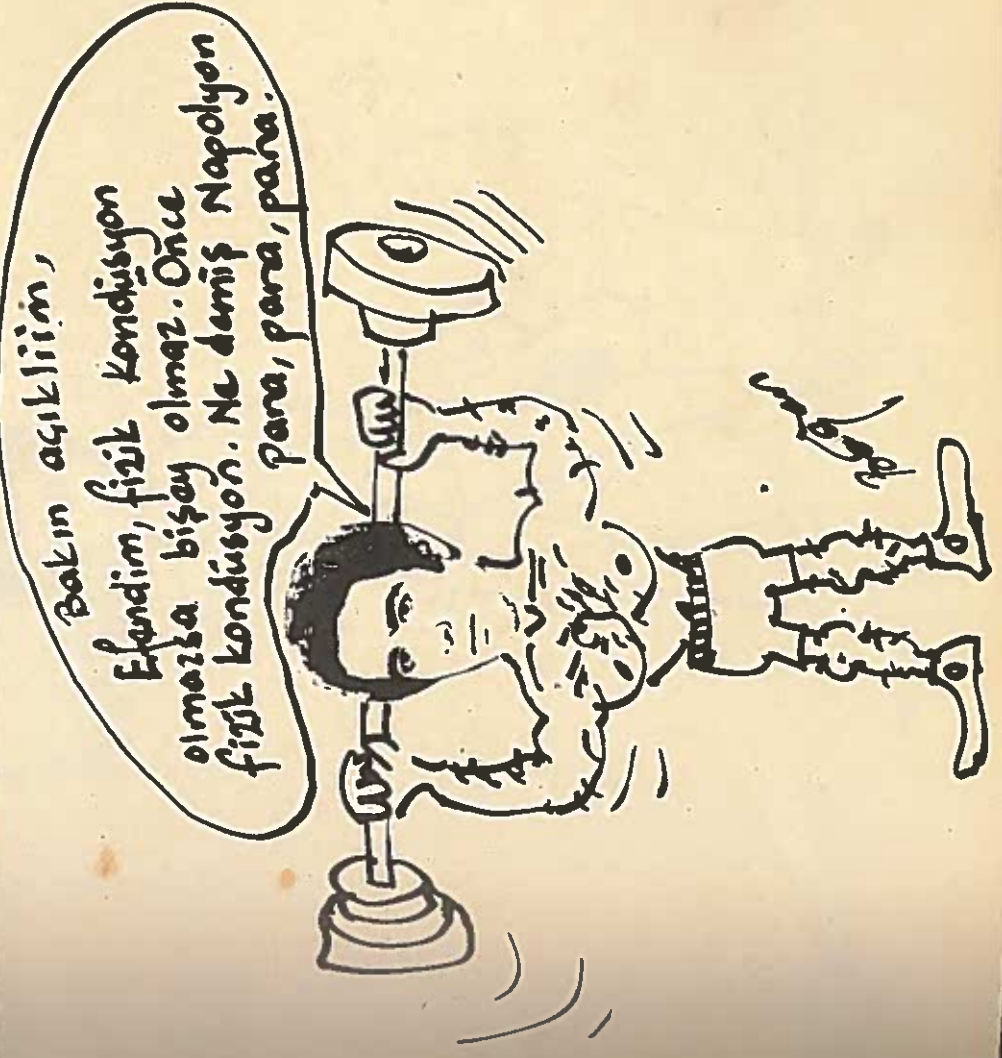 Bakın açıkliim,
Efendim, fizik kondüsyon
olmazsa bişey olmaz. Önce
fizik kondüsyon. Ne demiş Napolyon
para, para, para, para.